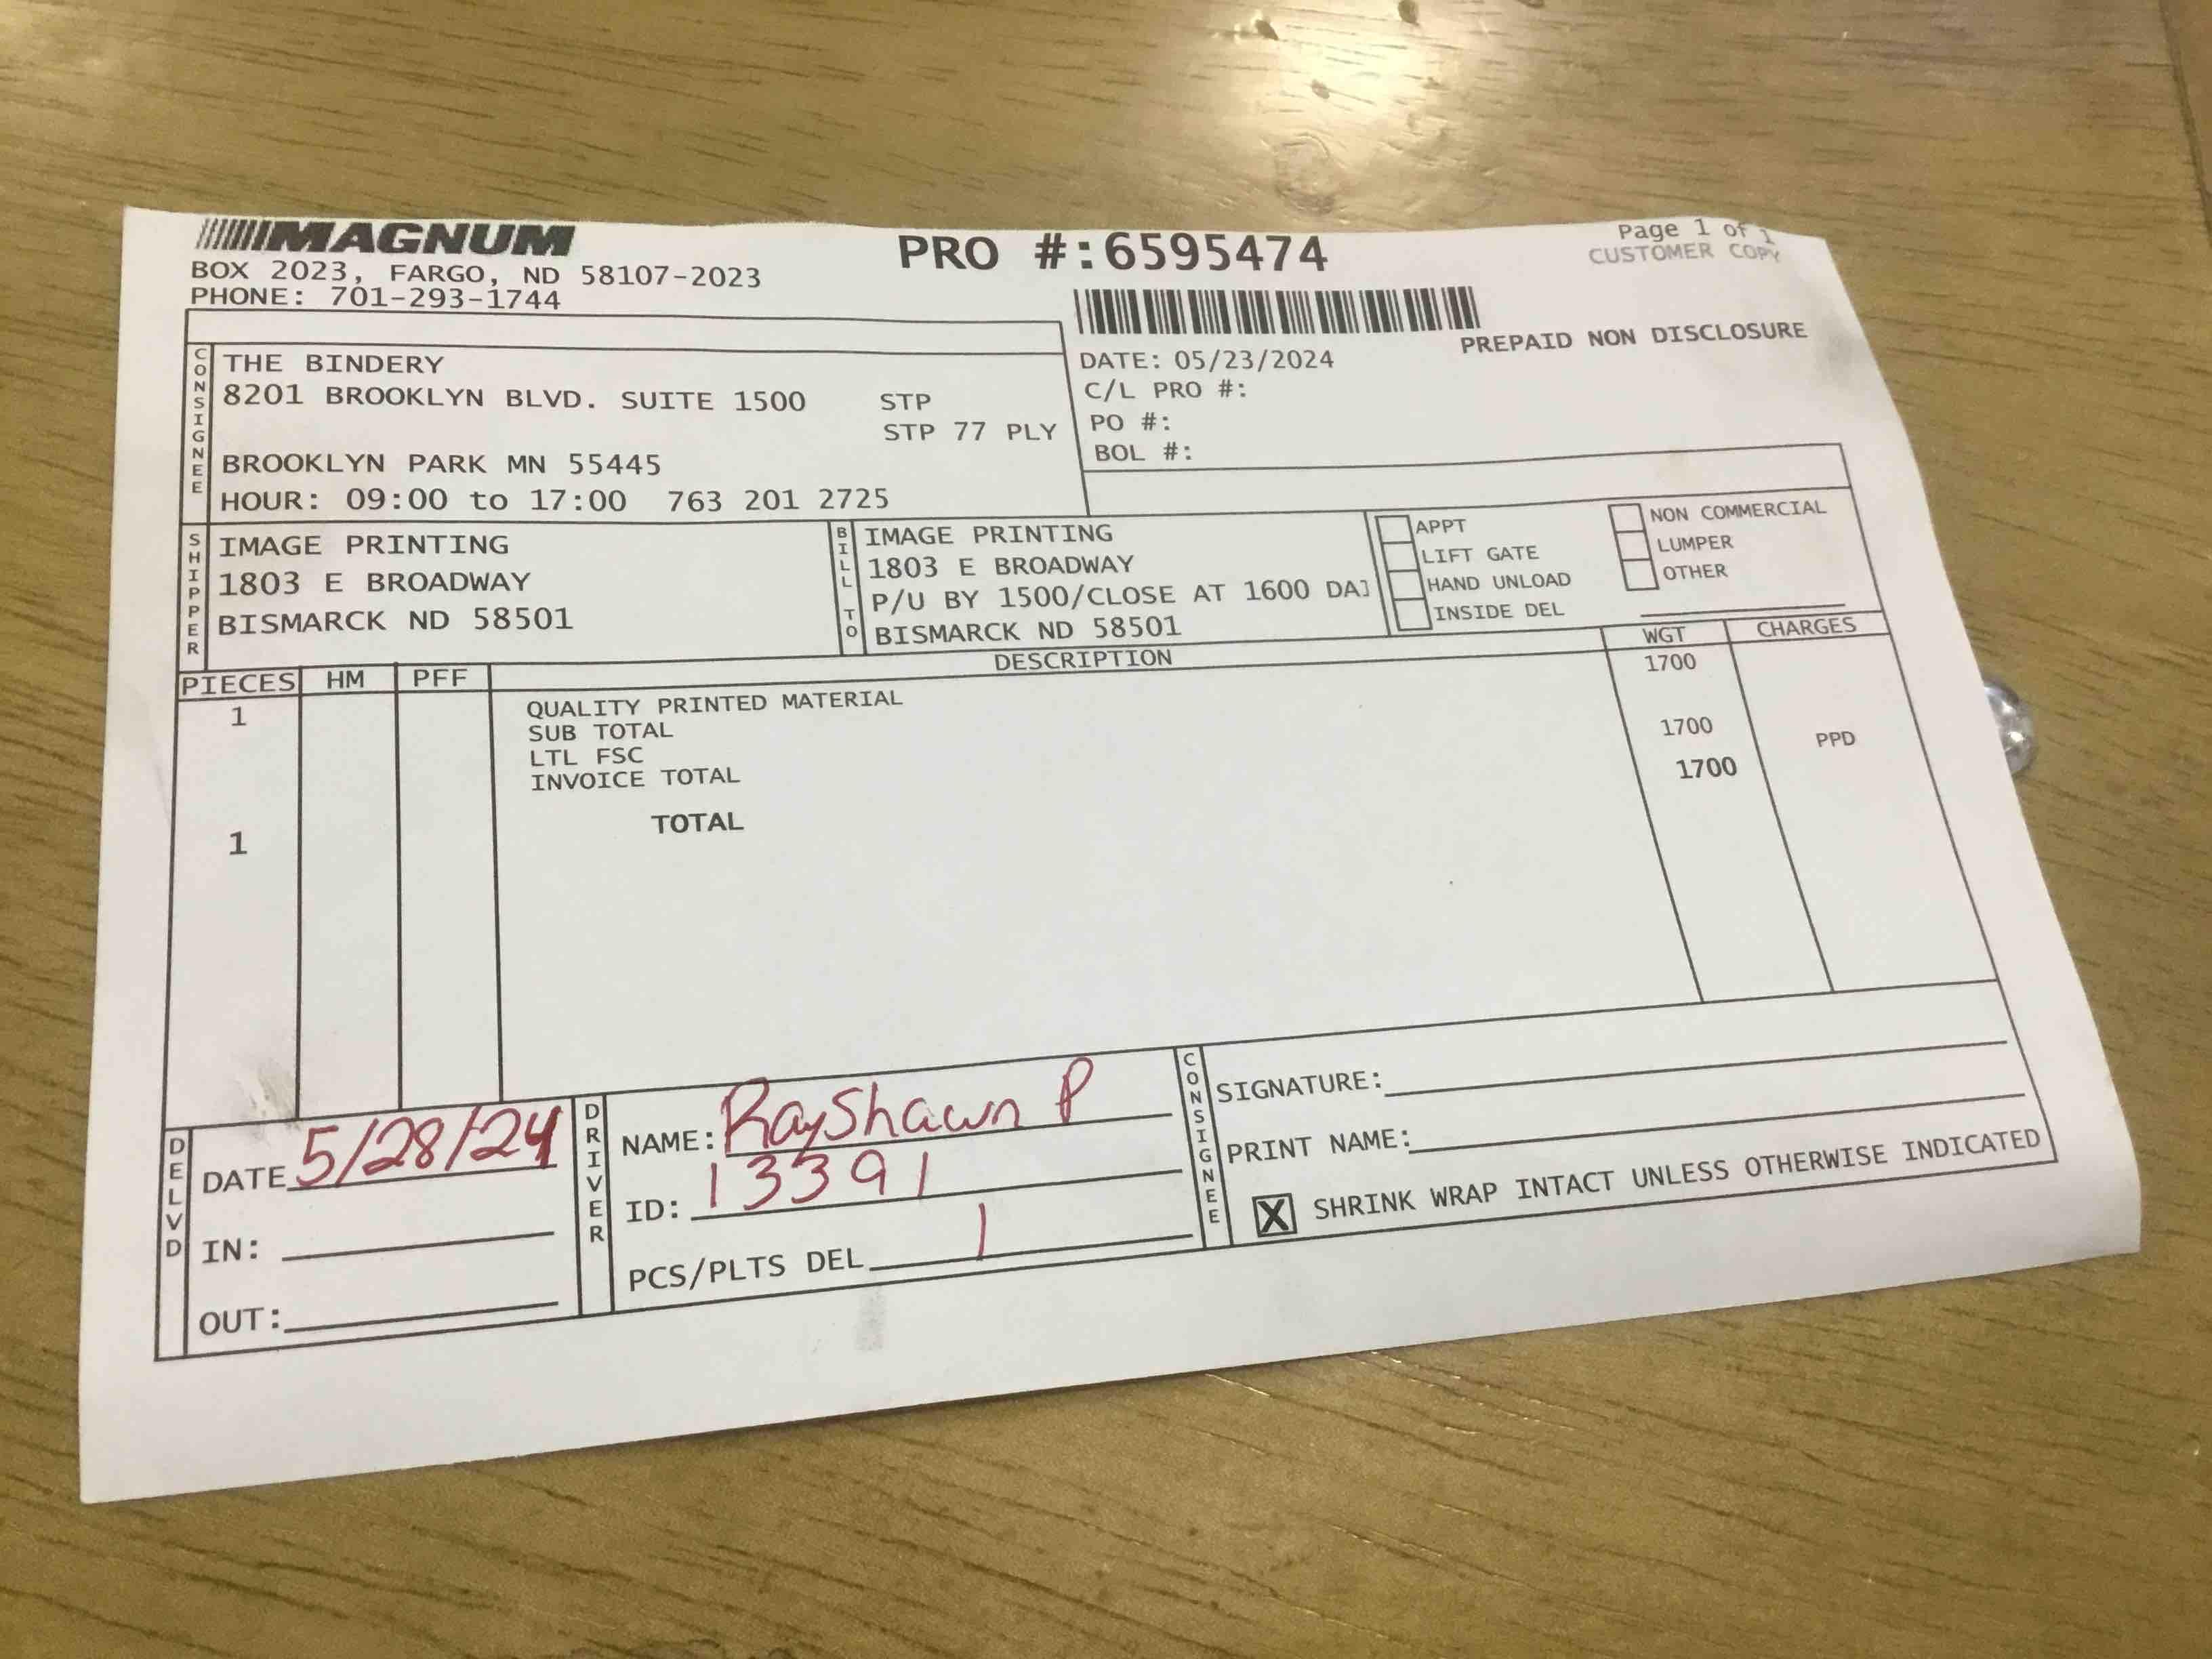 MAGNUM
BOX 2023, FARGO, ND 58107-2023
PHONE: 701-293-1744
PRO #:6595474
Page 1 of 1
CUSTOMER COPY
PREPAID NON DISCLOSURE
CONSIGNEE
THE BINDERY
8201 BROOKLYN BLVD. SUITE 1500 STP
STP 77 PLY
BROOKLYN PARK MN 55445
HOUR: 09:00 to 17:00 763 201 2725
DATE: 05/23/2024
C/L PRO #:
PO #:
BOL #:
SHIPPER
IMAGE PRINTING
1803 E BROADWAY
BISMARCK ND 58501
BILL TO
IMAGE PRINTING
1803 E BROADWAY
P/U BY 1500/CLOSE AT 1600 DAI
BISMARCK ND 58501
APPT
LIFT GATE
HAND UNLOAD
INSIDE DEL
NON COMMERCIAL
LUMPER
OTHER
PIECES HM PFF DESCRIPTION WGT CHARGES
1 QUALITY PRINTED MATERIAL 1700
SUB TOTAL
LTL FSC 1700
INVOICE TOTAL PPD
1 TOTAL 1700
DELVD
DATE 5/28/24
IN:
OUT:
DRIVER
NAME: RayShawn P
ID: 13391
PCS/PLTS DEL 1
CONSIGNEE
SIGNATURE:
PRINT NAME:
X SHRINK WRAP INTACT UNLESS OTHERWISE INDICATED